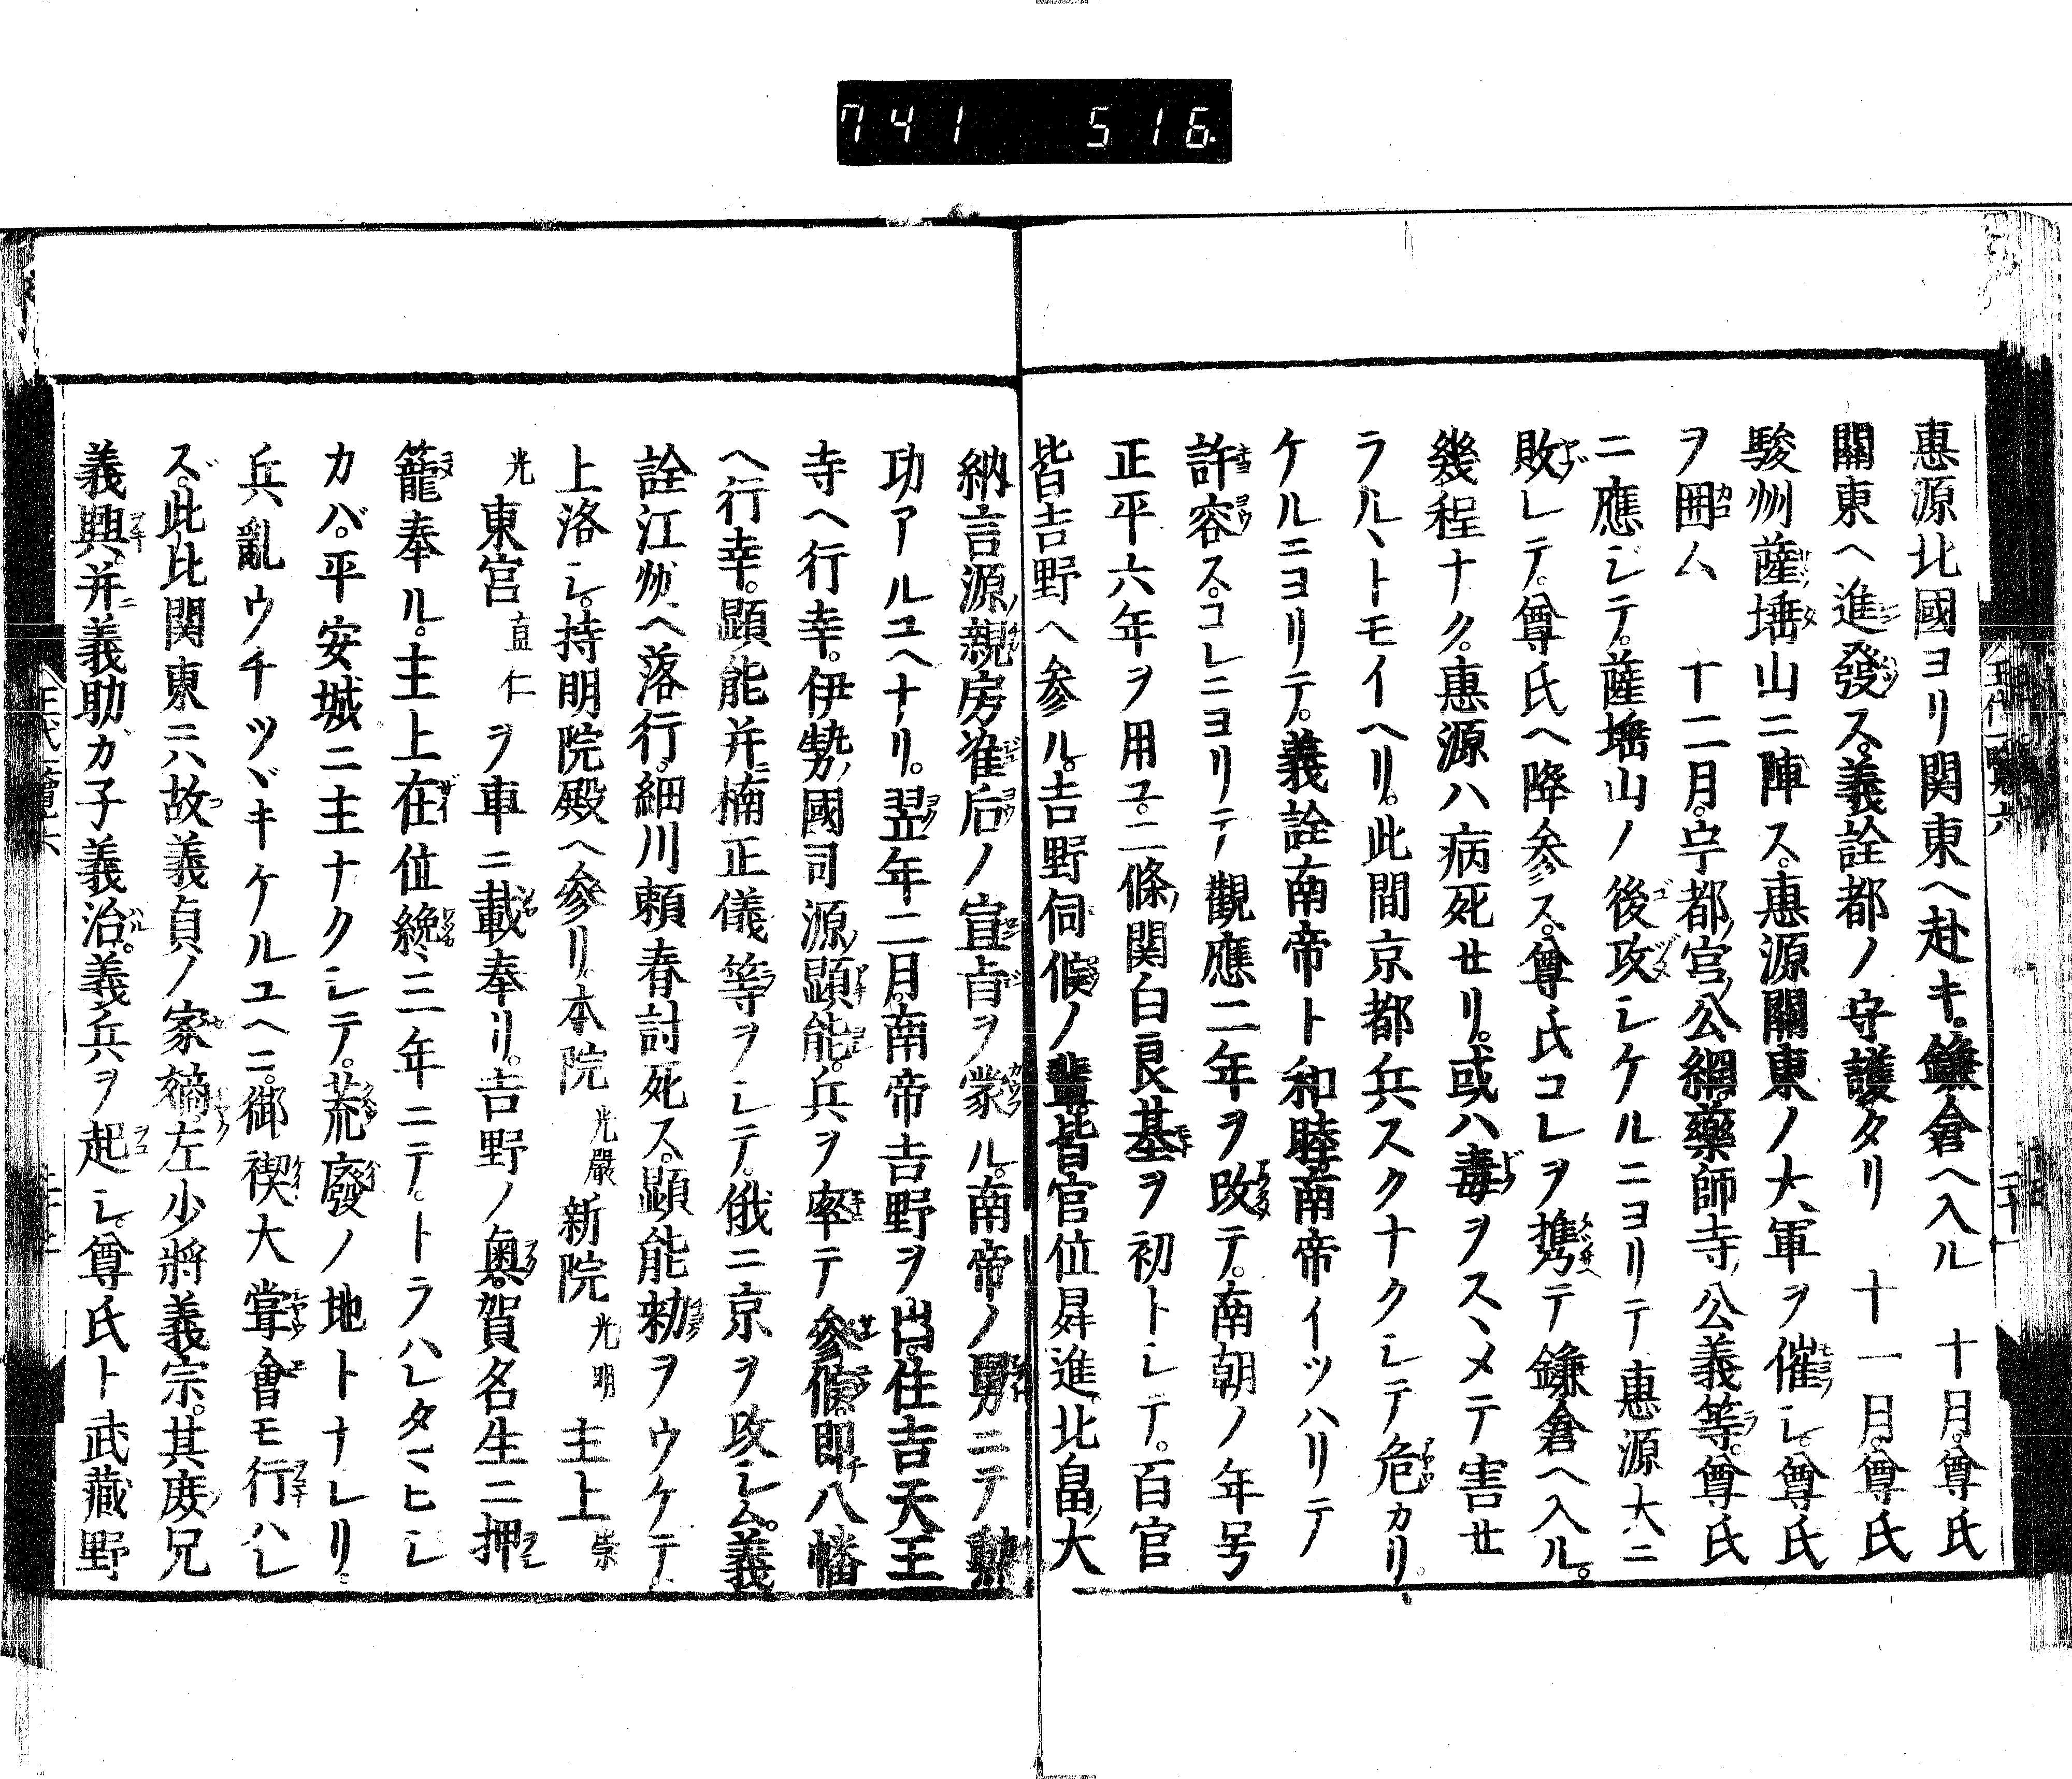 741 516
惠源北國ヨリ関東ヘ赴キ。鎌倉ヘ入ル　十月。尊氏
關東ヘ進發ス。義詮都ノ守護タリ　十一月。尊氏
駿州薩埵山ニ陣ス。惠源關東ノ大軍ヲ催シ。尊氏
ヲ囲ム　十二月。宇都宮公綱。藥師寺公義等。尊氏
ニ應ジテ。薩埵山ノ後攻シケルニヨリテ惠源大ニ
敗レテ。尊氏ヘ降參ス。尊氏コレヲ携テ鎌倉ヘ入ル。
幾程ナク。惠源ハ病死セリ。或ハ毒ヲスヽメテ害セ
ラルヽトモイヘリ。此間京都兵スクナクシテ危カリ
ケルニヨリテ。義詮南帝ト和睦。南帝イツハリテ
許容ス。コレニヨリテ觀應二年ヲ改テ。南朝ノ年号
正平六年ヲ用ユ。二條関白良基ヲ初トシテ。百官
皆吉野ヘ參ル。吉野伺候ノ輩。皆官位昇進。北畠大
納言源親房准后ノ宣旨ヲ蒙ル。南帝ノ舅ニテ勲
功アルユヘナリ。翌年二月。南帝吉野ヲ出。住吉天王
寺ヘ行幸。伊勢國司源顕能。兵ヲ率テ參候。即八幡
ヘ行幸。顕能并楠正儀等ヲシテ。俄ニ京ヲ攻シム。義
詮江州ヘ落行。細川頼春討死ス。顕能勅ヲウケテ。
上洛シ。持明院殿ヘ參リ。本院光嚴新院光明主上崇
光東宮直仁ヲ車ニ載奉リ。吉野ノ奧。賀名生ニ押
籠奉ル。主上在位纔三年ニテ。トラハレタマヒシ
カバ。平安城ニ主ナクシテ。荒廢ノ地トナレリ。
兵亂ウチツヾキケルユヘニ。御禊大甞會モ行ハレ
ズ。此比関東ニハ故義貞ノ家嫡。左少將義宗。其庶兄
義興。并義助ガ子義治。義兵ヲ起シ。尊氏ト武藏野